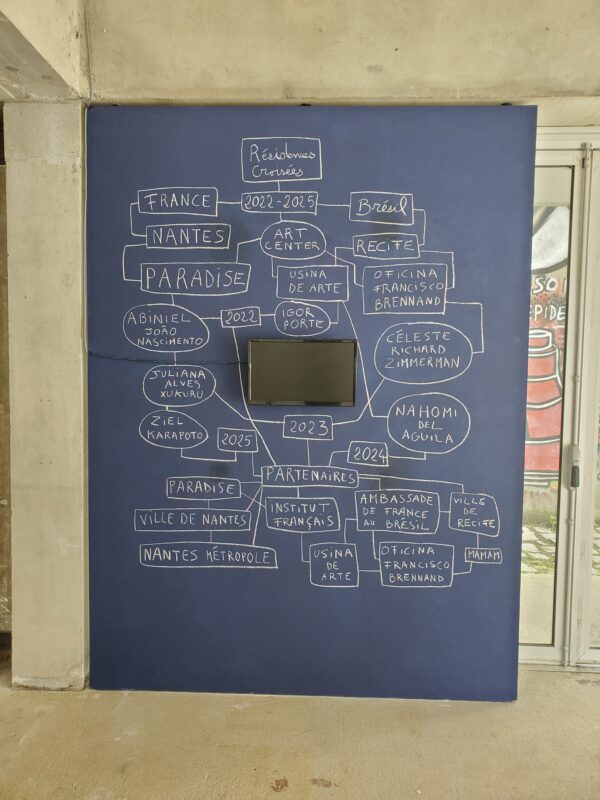 Résidences
Croisées
FRANCE
2022-2025
Brésil
NANTES
ART
CENTER
RECIFE
PARADISE
USINA
DE ARTE
OFICINA
FRANCISCO
BRENNAND
ABINIEL
JOÃO
NASCIMENTO
2022
IGOR
PORTE
CÉLESTE
RICHARD
ZIMMERMAN
JULIANA
ALVES
XUKURU
ZIEL
KARAPOTO
2025
2023
2024
NAHOMI
DEL
AGUILA
PARTENAIRES
PARADISE
VILLE DE NANTES
NANTES MÉTROPOLE
INSTITUT
FRANÇAIS
AMBASSADE
DE FRANCE
AU BRÉSIL
VILLE
DE
RECIFE
USINA
DE
ARTE
OFICINA
FRANCISCO
BRENNAND
MAMAM